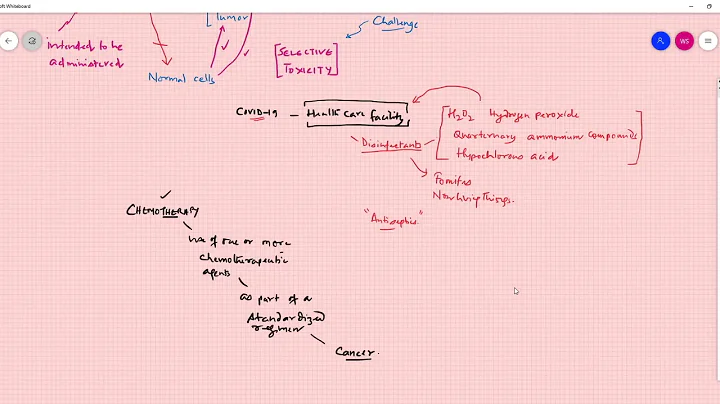 soft Whiteboard
Tumor
Challenge
intended to be
administered
Normal cells
SELECTIVE
TOXICITY
WS
COVID-19 - Health care facility
H2O2 Hydrogen peroxide
Quarternary ammonium compounds
Hypochlorous acid
Disinfectants
Fomites
Nonliving things.
"Antiseptics"
CHEMOTHERAPY
use of one or more
chemotherapeutic
agents
as part of a
standardized
regimen
Cancer.